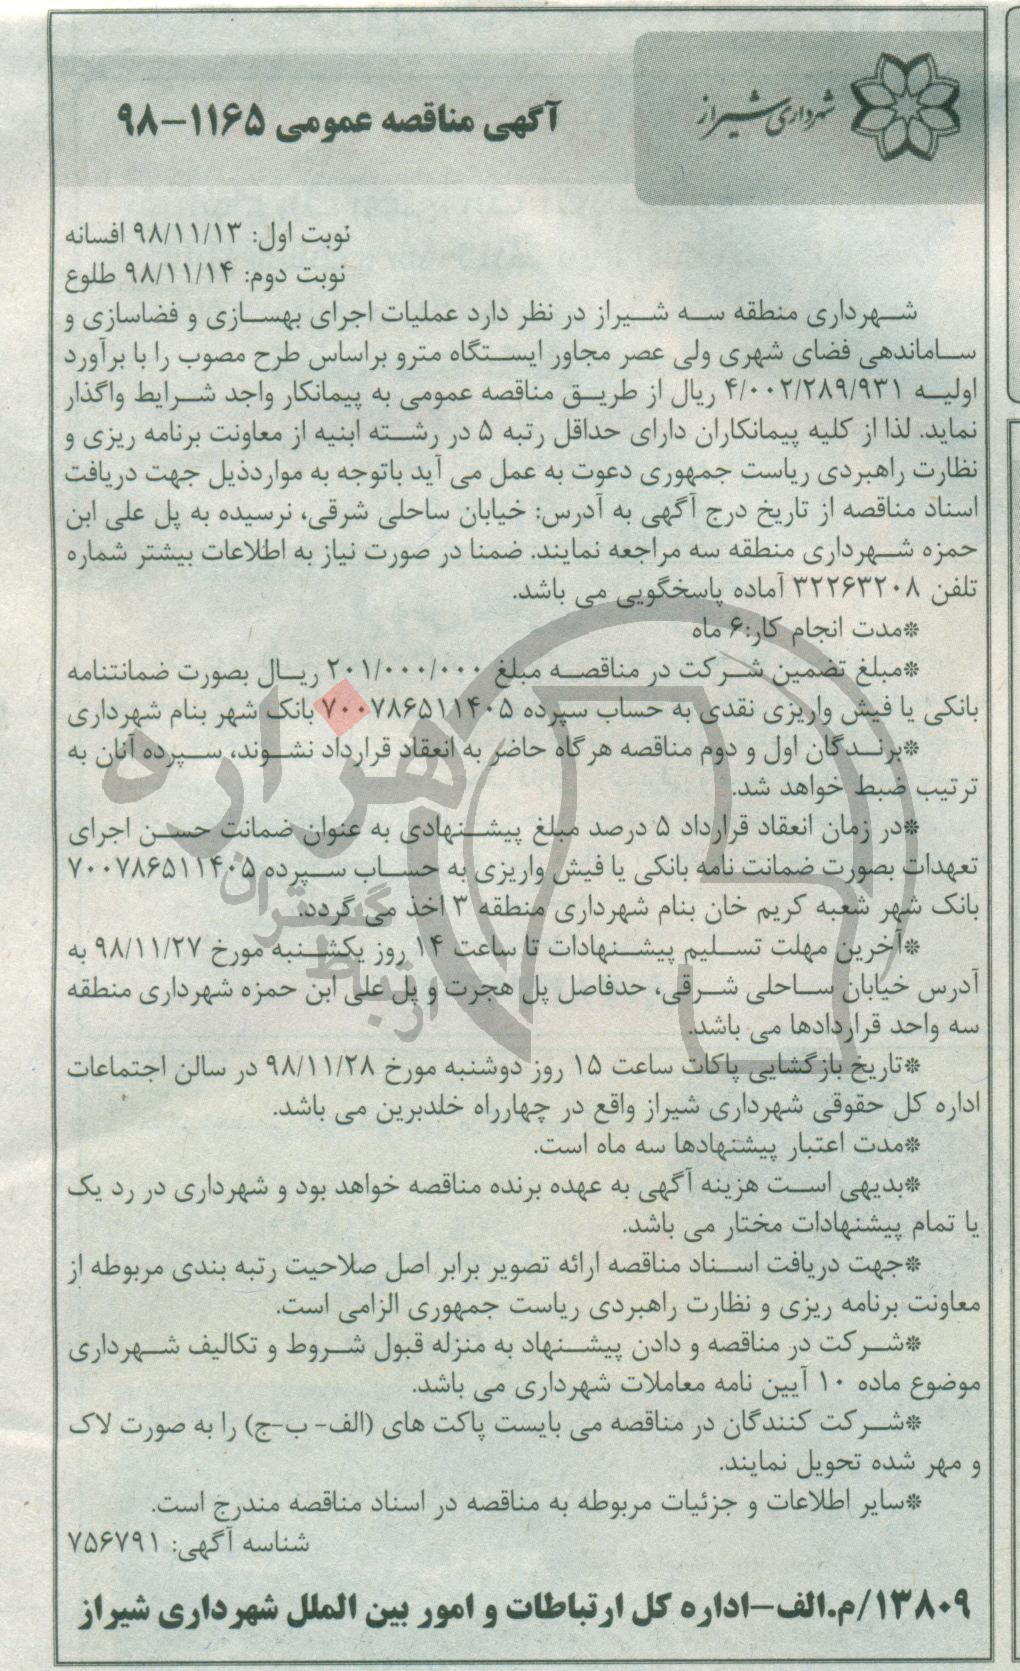 شهرداری شیراز
آگهی مناقصه عمومی ۱۱۶۵-۹۸
نوبت اول: ۹۸/۱۱/۱۳ افسانه
نوبت دوم: ۹۸/۱۱/۱۴ طلوع
شهرداری منطقه سه شیراز در نظر دارد عملیات اجرای بهسازی و فضاسازی و
ساماندهی فضای شهری ولی عصر مجاور ایستگاه مترو براساس طرح مصوب را با برآورد
اولیه ۴/۰۰۲/۲۸۹/۹۳۱ ریال از طریق مناقصه عمومی به پیمانکار واجد شرایط واگذار
نماید. لذا از کلیه پیمانکاران دارای حداقل رتبه ۵ در رشته ابنیه از معاونت برنامه ریزی و
نظارت راهبردی ریاست جمهوری دعوت به عمل می آید باتوجه به مواردذیل جهت دریافت
اسناد مناقصه از تاریخ درج آگهی به آدرس: خیابان ساحلی شرقی، نرسیده به پل علی ابن
حمزه شهرداری منطقه سه مراجعه نمایند. ضمنا در صورت نیاز به اطلاعات بیشتر شماره
تلفن ۳۲۲۶۳۲۰۸ آماده پاسخگویی می باشد.
*مدت انجام کار:۶ ماه
*مبلغ تضمین شرکت در مناقصه مبلغ ۲۰۱/۰۰۰/۰۰۰ ریال بصورت ضمانتنامه
بانکی یا فیش واریزی نقدی به حساب سپرده ۷۰۰۷۸۶۵۱۱۴۰۵ بانک شهر بنام شهرداری
*برندگان اول و دوم مناقصه هرگاه حاضر به انعقاد قرارداد نشوند، سپرده آنان به
ترتیب ضبط خواهد شد.
*در زمان انعقاد قرارداد ۵ درصد مبلغ پیشنهادی به عنوان ضمانت حسن اجرای
تعهدات بصورت ضمانت نامه بانکی یا فیش واریزی به حساب سپرده ۷۰۰۷۸۶۵۱۱۴۰۵
بانک شهر شعبه کریم خان بنام شهرداری منطقه ۳ اخذ می گردد.
*آخرین مهلت تسلیم پیشنهادات تا ساعت ۱۴ روز یکشنبه مورخ ۹۸/۱۱/۲۷ به
آدرس خیابان ساحلی شرقی، حدفاصل پل هجرت و پل علی ابن حمزه شهرداری منطقه
سه واحد قراردادها می باشد.
*تاریخ بازگشایی پاکات ساعت ۱۵ روز دوشنبه مورخ ۹۸/۱۱/۲۸ در سالن اجتماعات
اداره کل حقوقی شهرداری شیراز واقع در چهارراه خلدبرین می باشد.
*مدت اعتبار پیشنهادها سه ماه است.
*بدیهی است هزینه آگهی به عهده برنده مناقصه خواهد بود و شهرداری در رد یک
یا تمام پیشنهادات مختار می باشد.
*جهت دریافت اسناد مناقصه ارائه تصویر برابر اصل صلاحیت رتبه بندی مربوطه از
معاونت برنامه ریزی و نظارت راهبردی ریاست جمهوری الزامی است.
*شرکت در مناقصه و دادن پیشنهاد به منزله قبول شروط و تکالیف شهرداری
موضوع ماده ۱۰ آیین نامه معاملات شهرداری می باشد.
*شرکت کنندگان در مناقصه می بایست پاکت های (الف- ب-ج) را به صورت لاک
و مهر شده تحویل نمایند.
*سایر اطلاعات و جزئیات مربوطه به مناقصه در اسناد مناقصه مندرج است.
شناسه آگهی: ۷۵۶۷۹۱
۱۳۸۰۹/م.الف-اداره کل ارتباطات و امور بین الملل شهرداری شیراز
هزاره